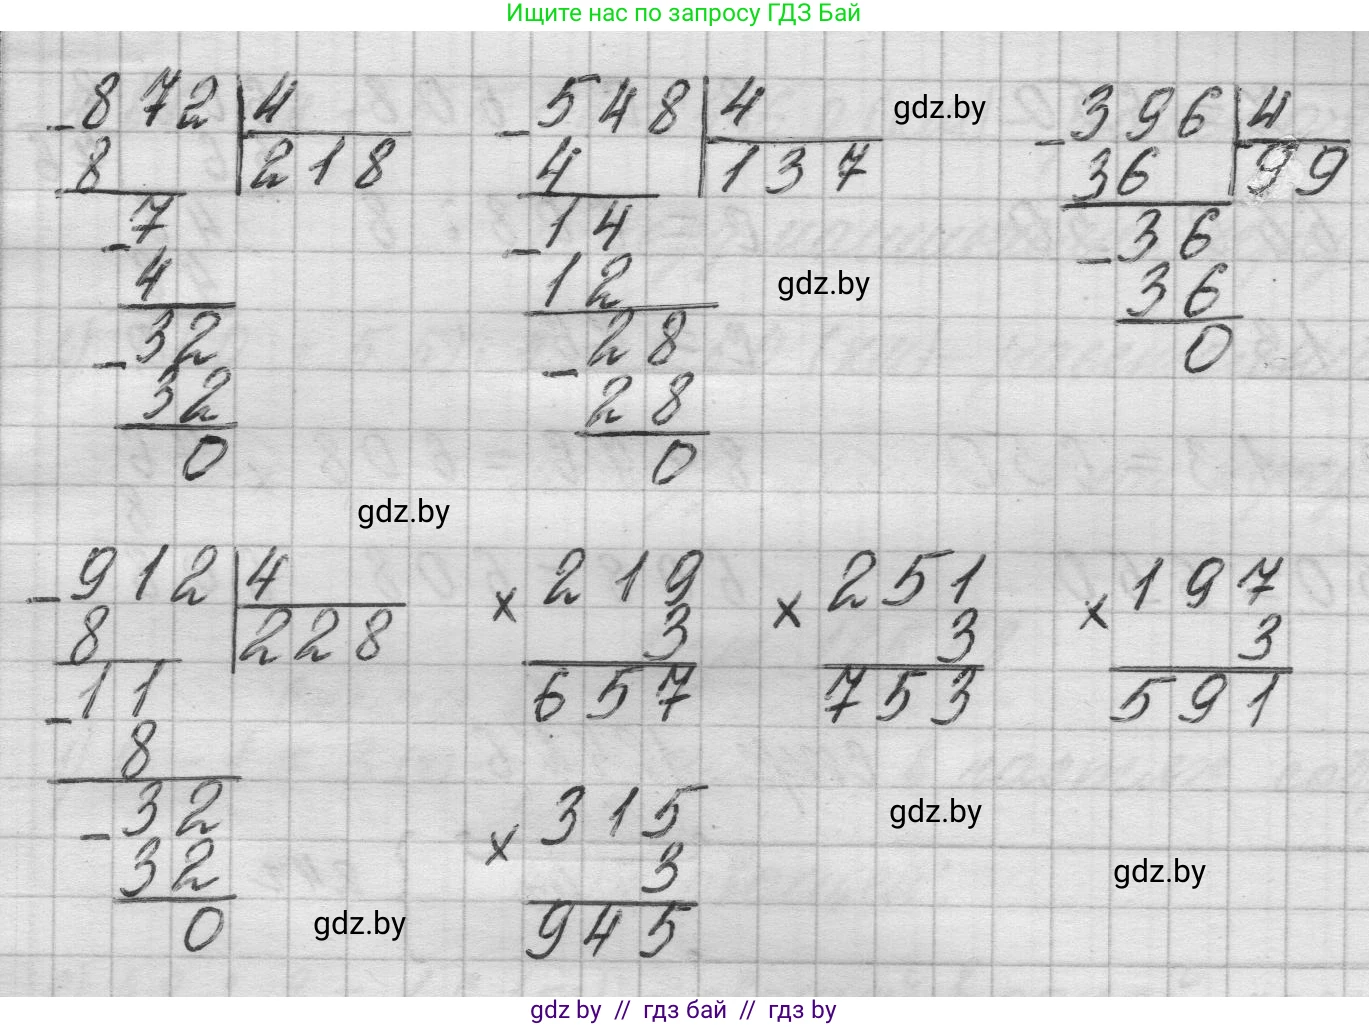 Ищите нас по запросу ГДЗ Бай
- 872 | 4
8 218
- 7
4
- 32
32
0
- 548 | 4
4 137
- 14
12
- 28
28
0
gdz.by
gdz.by
- 396 | 4
36 99
- 36
36
0
gdz.by
- 912 | 4
8 228
- 11
8
- 32
32
0
× 219
3
657
× 251
3
753
× 197
3
591
× 315
3
945
gdz.by
gdz.by
gdz.by
gdz by // гдз бай // гдз by